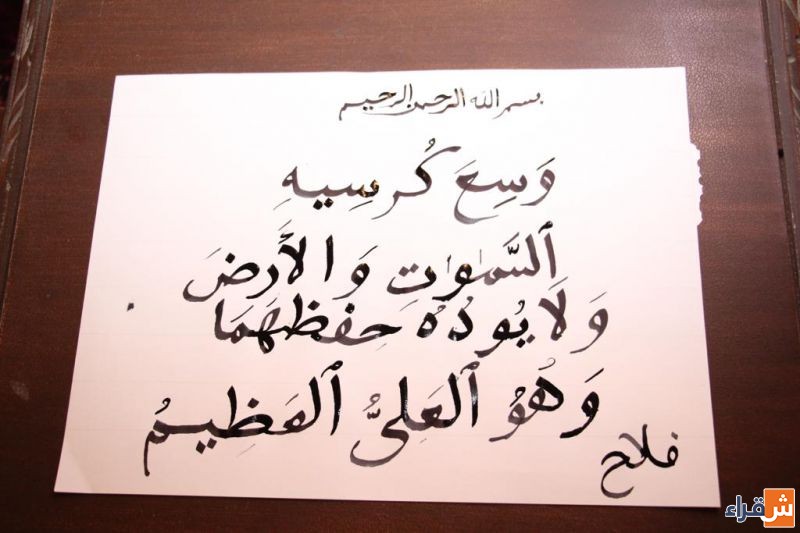 بسم الله الرحمن الرحيم
وَسِعَ كُرسِيهِ
ٱلسَّمَٰوَٰتِ وَالأَرضَ
وَلَا يُودُهُ حِفظُهَمَا
وَهُوَ ٱلعَلِىُّ ٱلعَظِيمُ
فلاح
شقراء